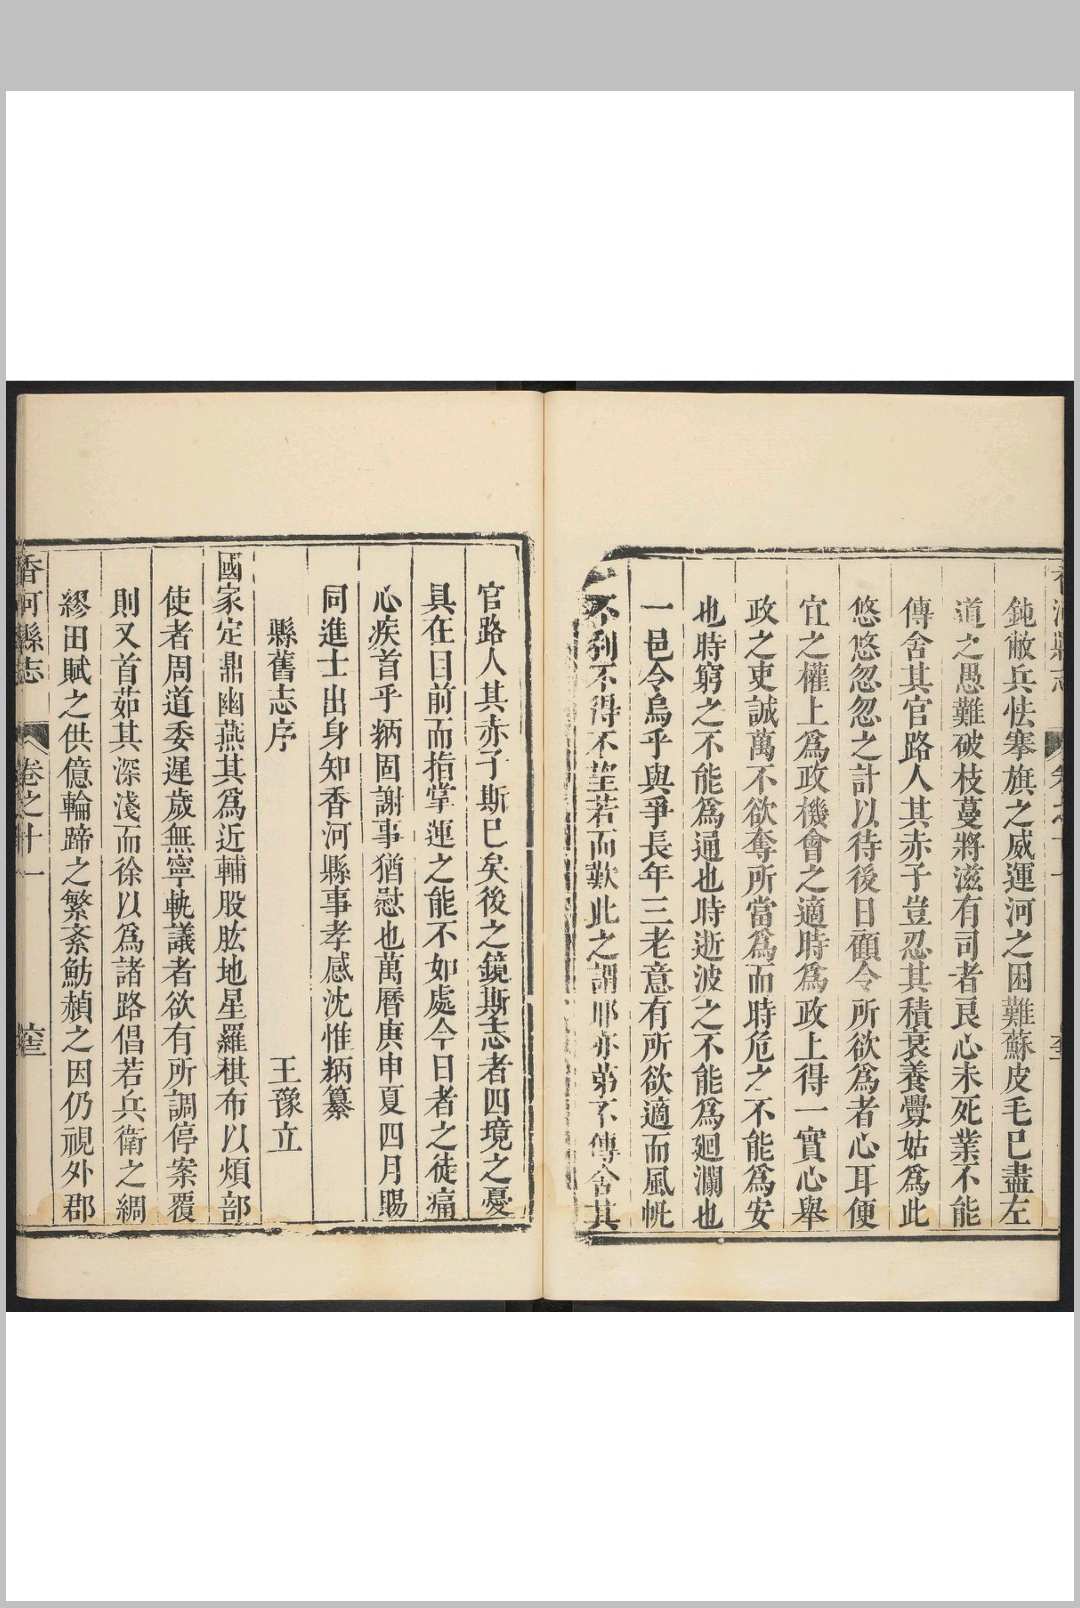 鈍敝兵怯搴旗之威運河之困難蘇皮毛巳盡左
道之愚難破枝蔓將滋有司者良心未死業不能
傳舍其官路人其赤子豈忍其積衰養釁姑爲此
悠悠忽忽之計以待後日顧令所欲爲者心耳便
宜之權上爲政機會之適時爲政上得一實心舉
政之吏誠萬不欲奪所當爲而時危之不能爲安
也時窮之不能爲通也時逝波之不能爲廻瀾也
一邑令烏乎與爭長年三老意有所欲適而風帆
不利不得不望若而歎此之謂耶亦第不傳舍其
官路人其赤子斯巳矣後之鏡斯志者四境之憂
具在目前而指掌運之能不如處今日者之徒痛
心疾首乎炳固謝事猶慰也萬曆庚申夏四月賜
同進士出身知香河縣事孝感沈惟炳纂
縣舊志序 王豫立
國家定鼎幽燕其爲近輔股肱地星羅棋布以煩部
使者周道委遲歲無寧軌議者欲有所調停案覆
則又首茹其深淺而徐以爲諸路倡若兵衛之綢
繆田賦之供億輪蹄之繁紊魴赬之因仍視外郡
香河縣志 卷之十一